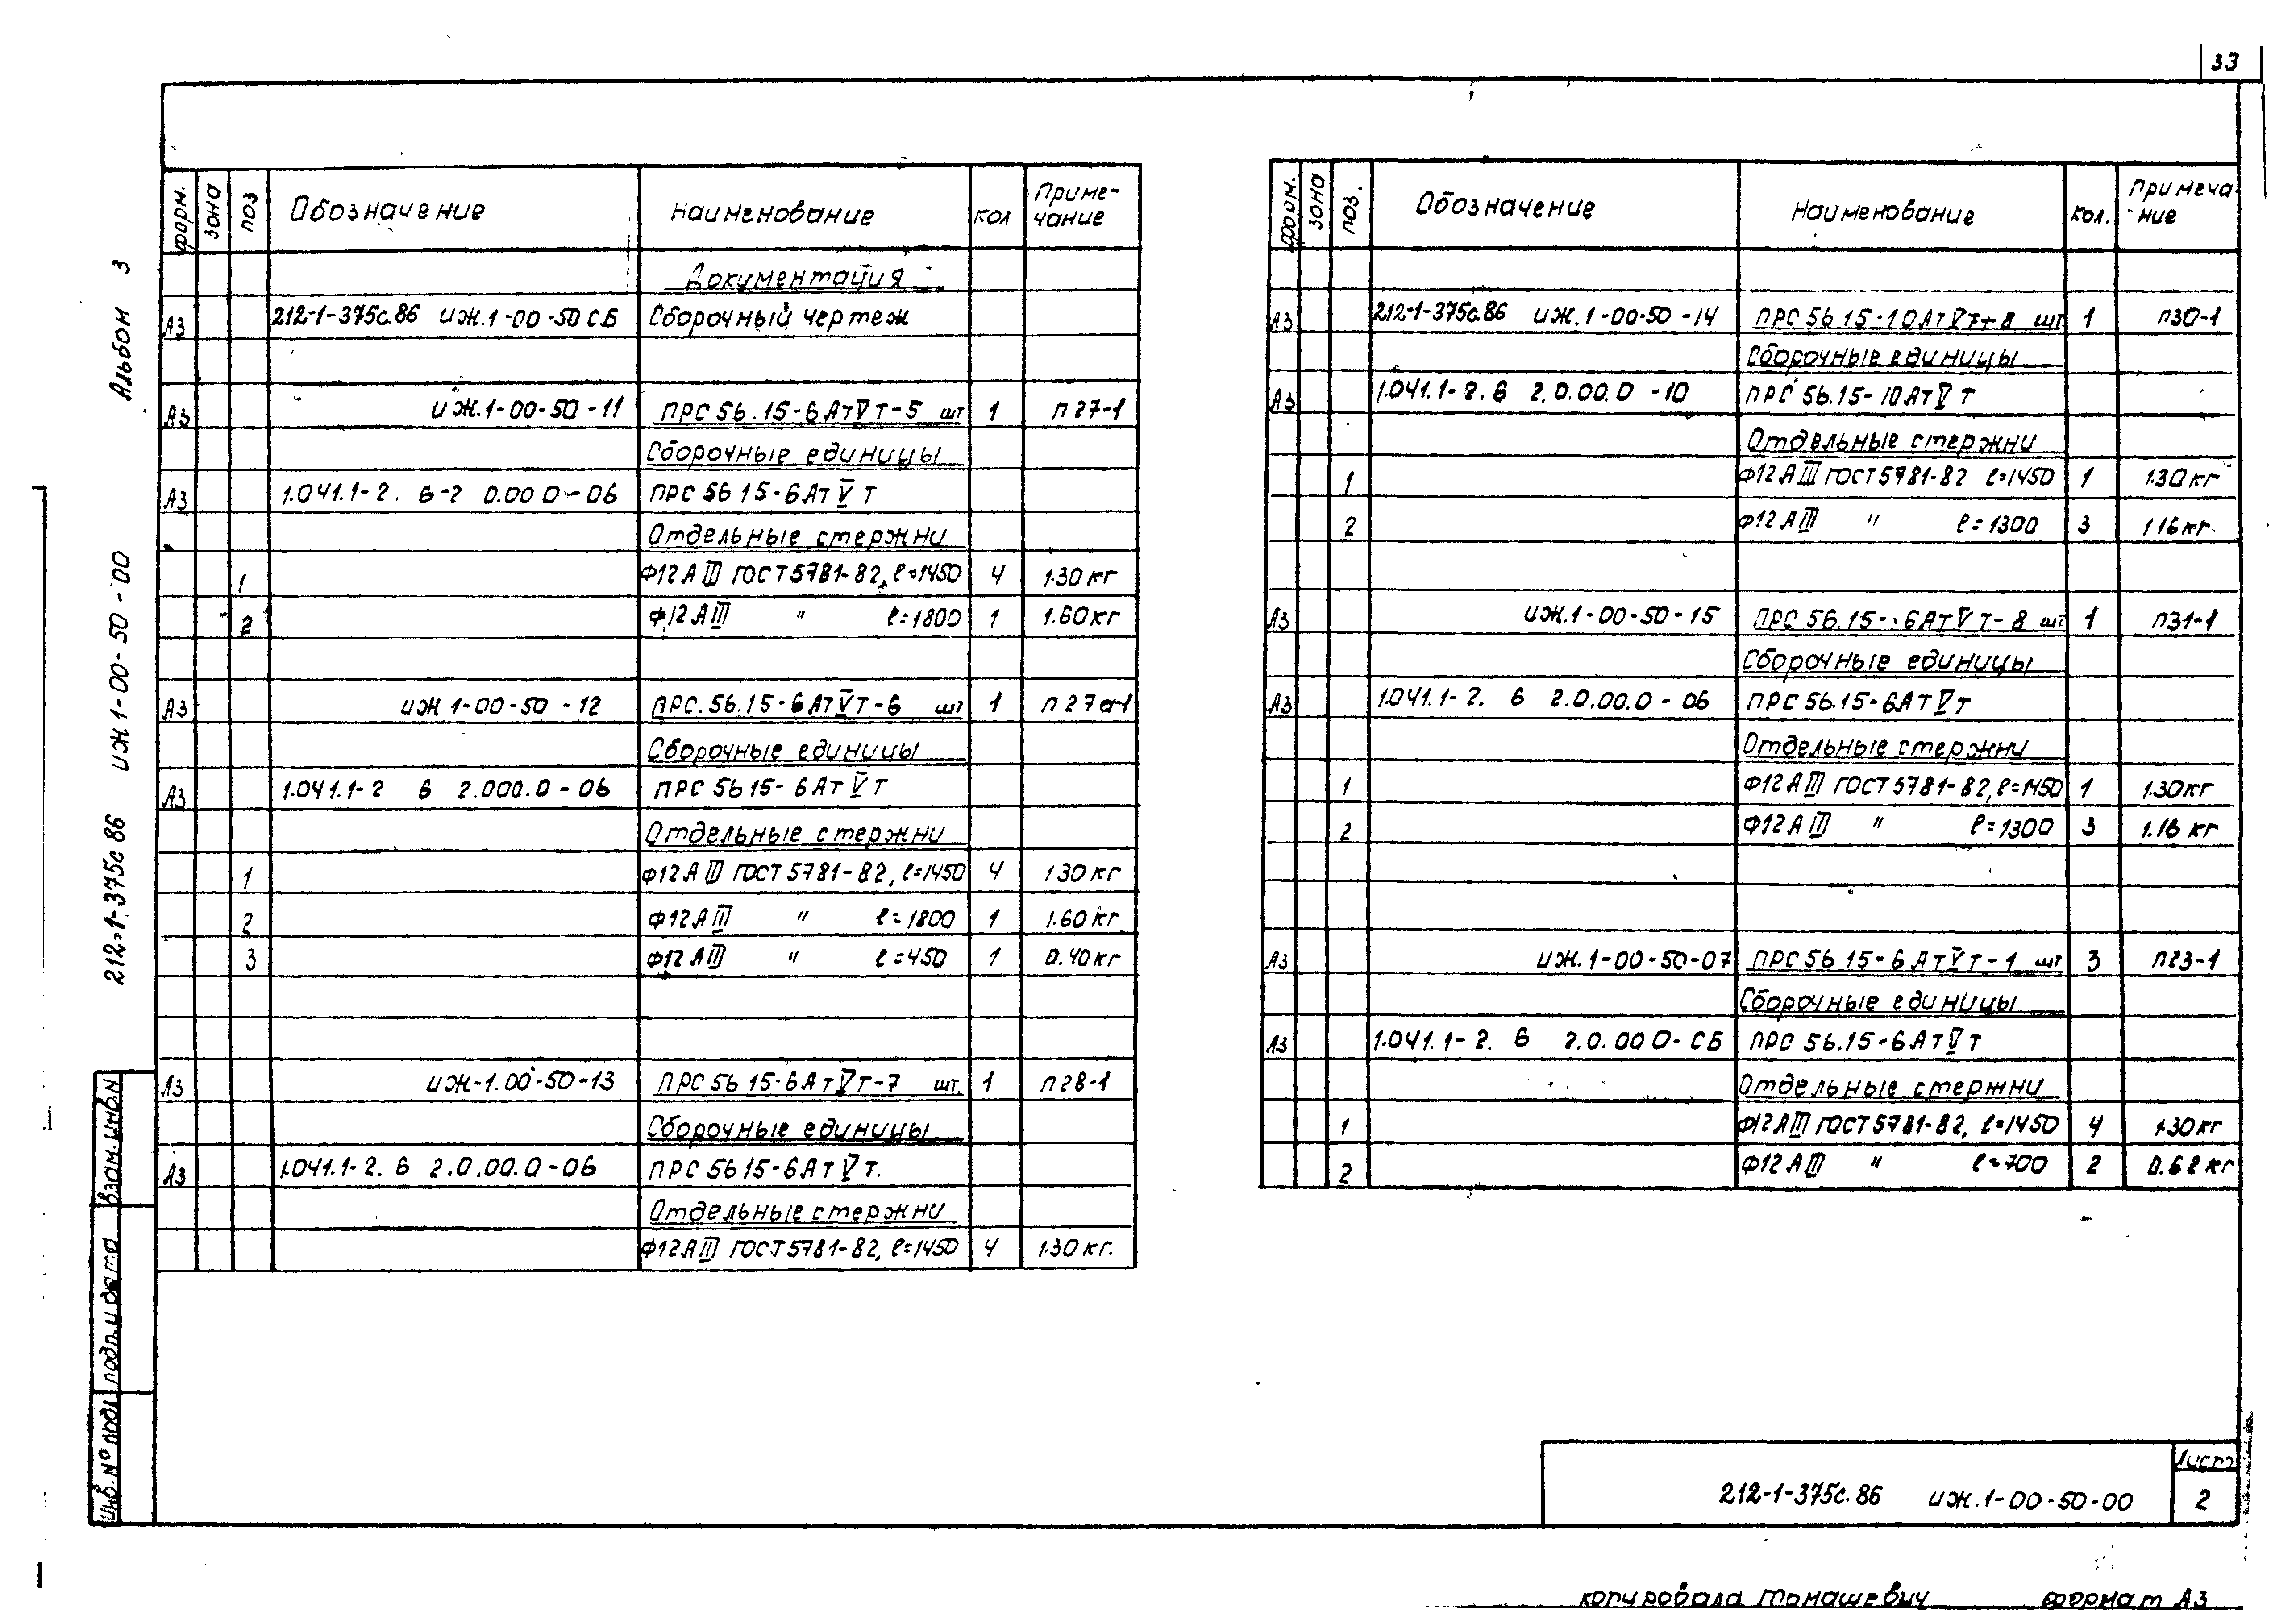 33
Альбом 3
212-1-375с 86 ИЖ 1-00-50-00
Взам. инв. N
Подп. и дата
Инв. № подл
Форм. Зона Поз Обозначение Наименование Кол Примечание
Документация
А3 212-1-375с.86 ИЖ.1-00-50 СБ Сборочный чертеж
А3 ИЖ.1-00-50-11 ПРС 56.15-6 АтV Т-5 шт 1 П 27-1
Сборочные единицы
А3 1.041.1-2. 6-2 0.00 0-06 ПРС 56 15-6 Ат V Т
Отдельные стержни
1 Ф12 А III ГОСТ 5781-82, ℓ=1450 4 1.30 кг
2 Ф12 А III " ℓ=1800 1 1.60 кг
А3 ИЖ 1-00-50-12 ПРС.56.15-6 Ат V Т-6 шт 1 П 27а-1
Сборочные единицы
А3 1.041.1-2 6 2.000.0-06 ПРС 56 15-6 Ат V Т
Отдельные стержни
1 Ф12 А III ГОСТ 5781-82, ℓ=1450 4 1 30 кг
2 Ф12 А III " ℓ=1800 1 1.60 кг
3 Ф12 А III " ℓ=450 1 0.40 кг
А3 ИЖ-1.00-50-13 ПРС 56 15-6 Ат V Т-7 шт. 1 П 28-1
Сборочные единицы
А3 1.041.1-2. 6 2.0.00.0-06 ПРС 56 15-6 Ат V Т.
Отдельные стержни
Ф12 А III ГОСТ 5781-82, ℓ=1450 4 1.30 кг.
Форм. Зона Поз. Обозначение Наименование Кол. Примечание
А3 212-1-375с.86 ИЖ.1-00-50-14 ПРС 56 15-10 Ат V Т-8 шт 1 П30-1
Сборочные единицы
А3 1.041.1-2.6 2.0.00.0-10 ПРС 56.15-10 Ат V Т
Отдельные стержни
1 Ф12 А III ГОСТ 5781-82 ℓ=1450 1 1.30 кг
2 Ф12 А III " ℓ=1300 3 1 16 кг
А3 ИЖ.1-00-50-15 ПРС 56.15-6 Ат V Т-8 шт 1 П31-1
Сборочные единицы
А3 1.041.1-2. 6 2.0.00.0-06 ПРС 56.15-6 Ат V Т
Отдельные стержни
1 Ф12 А III ГОСТ 5781-82, ℓ=1450 1 1.30 кг
2 Ф12 А III " ℓ=1300 3 1.16 кг
А3 ИЖ.1-00-50-07 ПРС 56 15-6 Ат V Т-1 шт 3 П23-1
Сборочные единицы
А3 1.041.1-2. 6 2.0.00 0-СБ ПРС 56.15-6 Ат V Т
Отдельные стержни
1 Ф12 А III ГОСТ 5781-82, ℓ=1450 4 1.30 кг
2 Ф12 А III " ℓ=700 2 0.62 кг
212-1-375с.86 ИЖ.1-00-50-00
Лист
2
Копировала Томашевич Формат А3